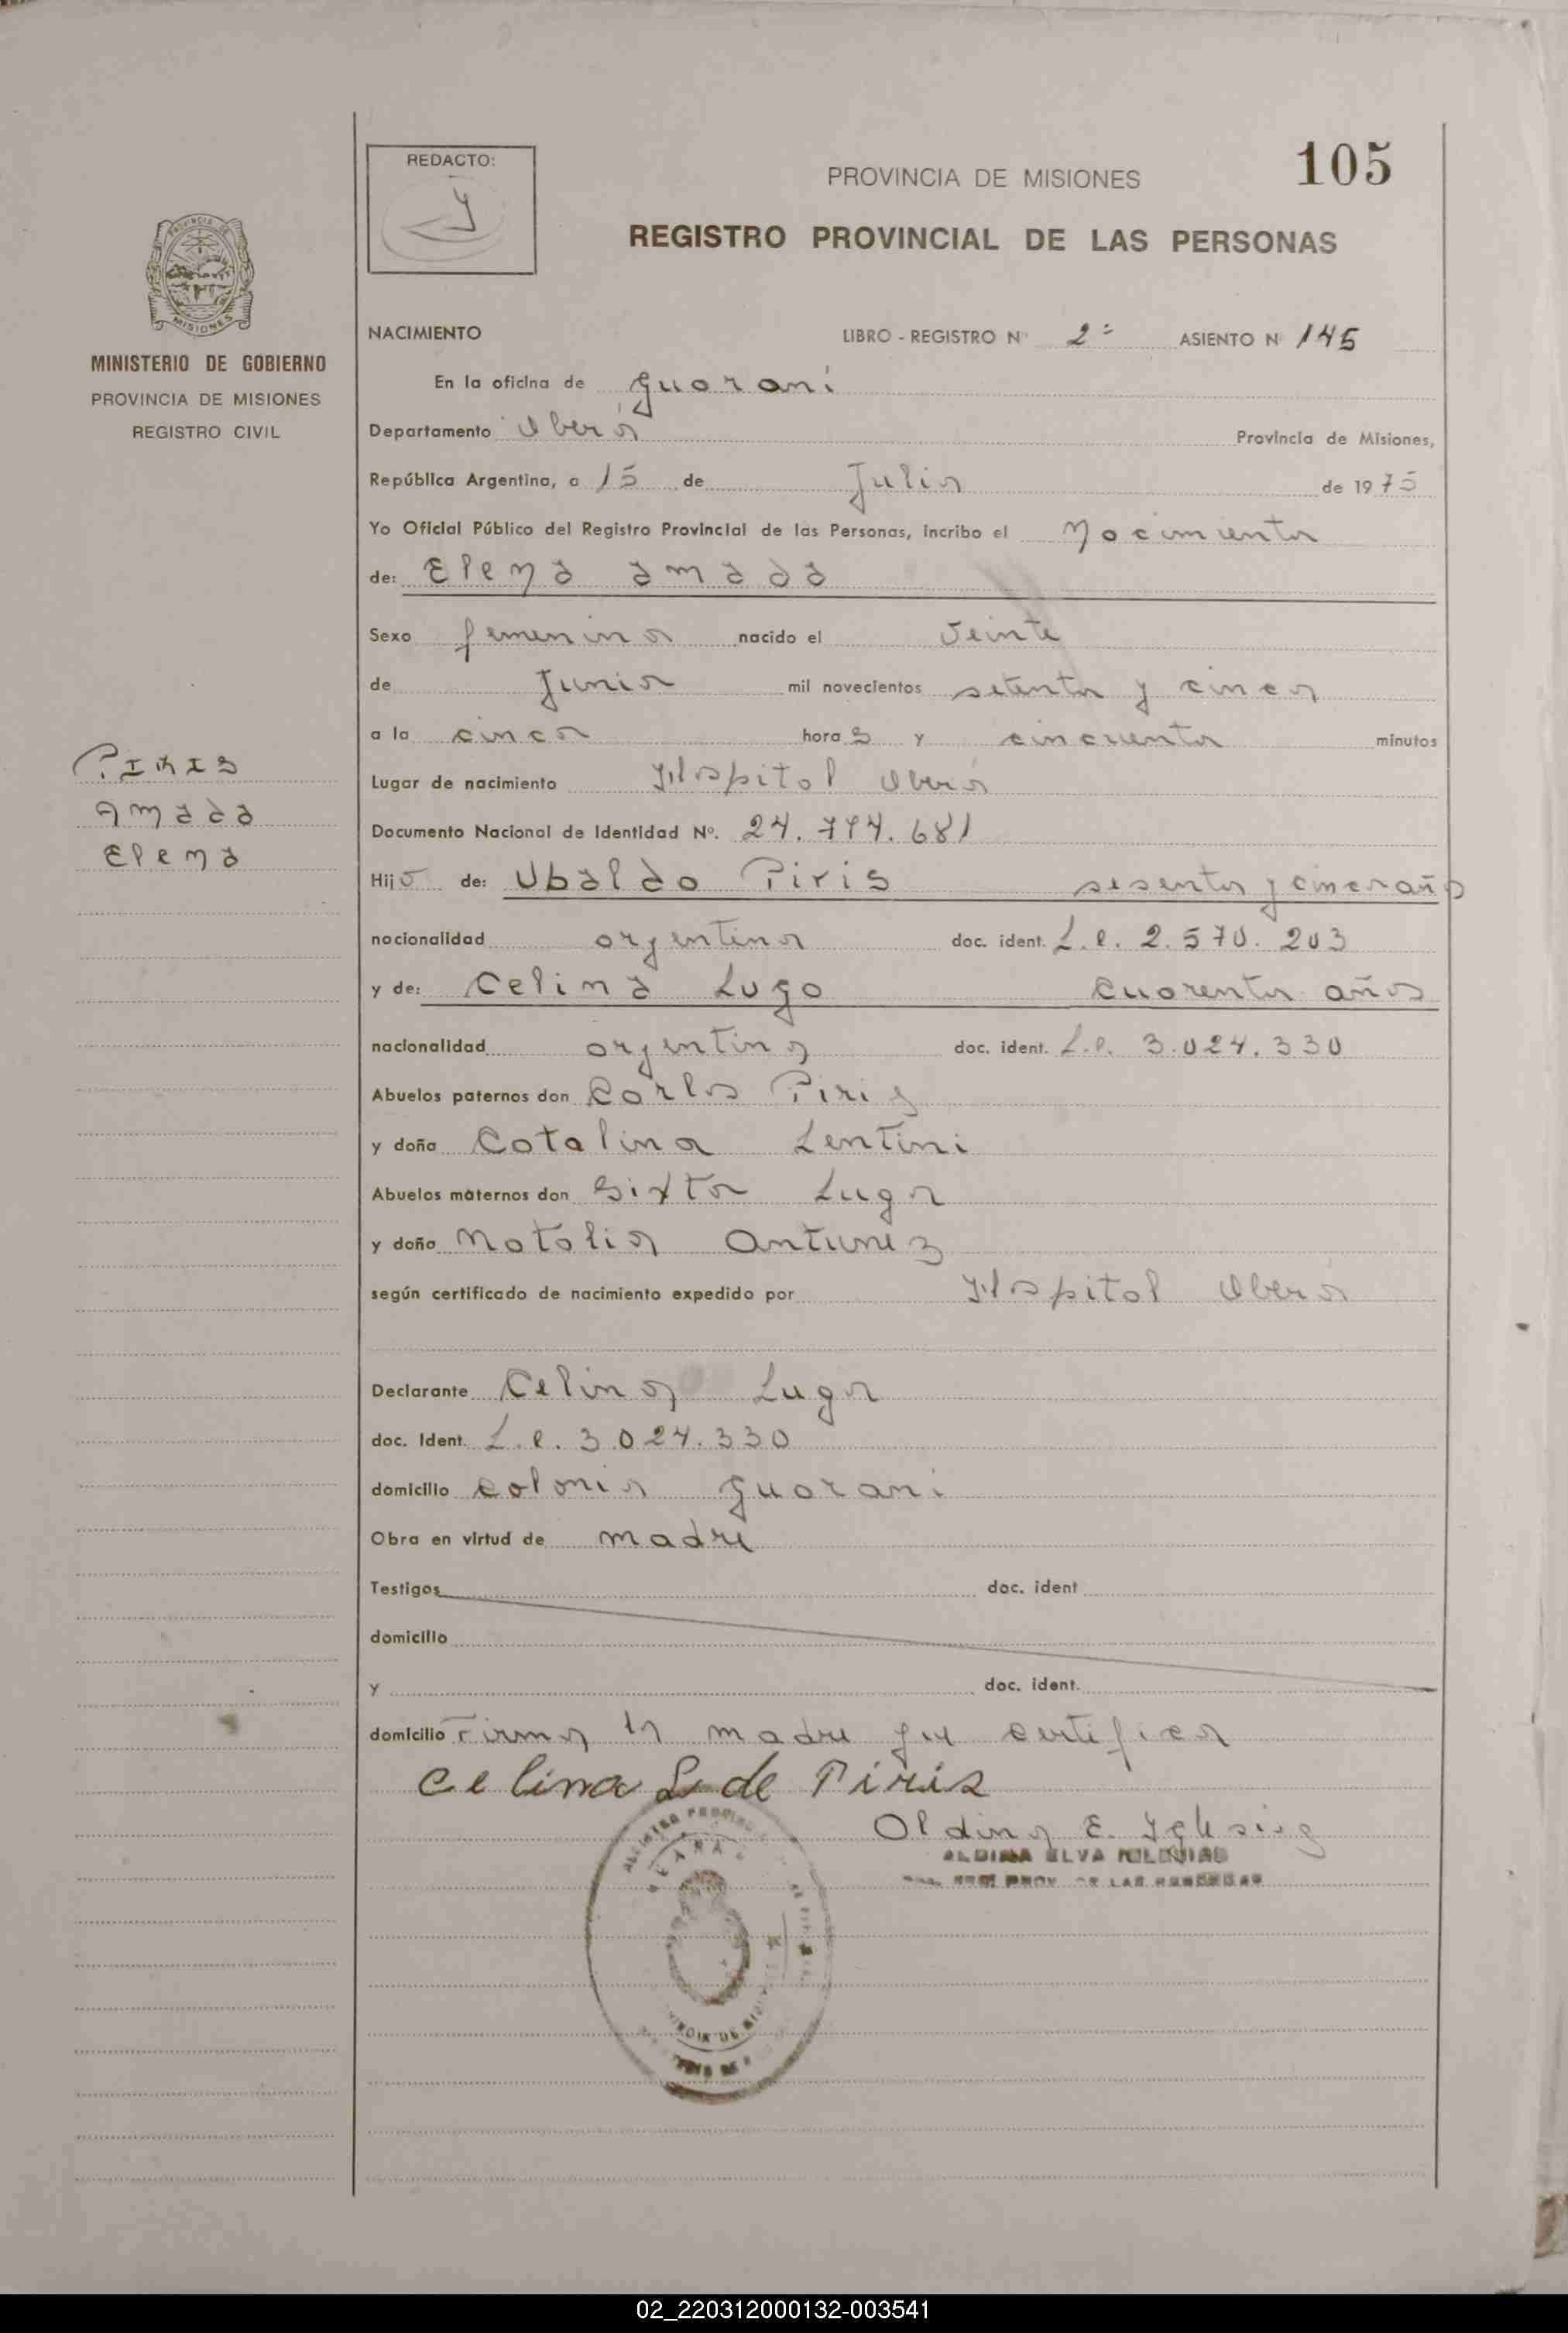 REDACTO:
PROVINCIA DE MISIONES
105
REGISTRO PROVINCIAL DE LAS PERSONAS
PROVINCIA DE
MISIONES
MINISTERIO DE GOBIERNO
PROVINCIA DE MISIONES
REGISTRO CIVIL
NACIMIENTO LIBRO - REGISTRO Nº 2º ASIENTO Nº 145
En la oficina de Guaraní
Departamento Oberá Provincia de Misiones,
República Argentina, a 15 de Julio de 1975
Yo Oficial Público del Registro Provincial de las Personas, incribo el Nacimiento
de: Elena Amada
Sexo femenino nacido el veinte
de Junio mil novecientos setenta y cinco
a la cinco horas y cincuenta minutos
Piris
Amada
Elena
Lugar de nacimiento Hospital Oberá
Documento Nacional de Identidad Nº. 24.794.681
Hija de: Ubaldo Piris sesenta y cinco años
nacionalidad argentina doc. ident. L.e. 2.570.203
y de: Celina Lugo cuarenta años
nacionalidad argentina doc. ident. L.e. 3.024.330
Abuelos paternos don Carlos Piris
y doña Catalina Lentini
Abuelos maternos don Sixto Lugo
y doña Natalia Antunez
según certificado de nacimiento expedido por Hospital Oberá
Declarante Celina Lugo
doc. Ident. L.e. 3.024.330
domicilio Colonia Guaraní
Obra en virtud de madre
Testigos doc. ident
domicilio
y doc. ident.
domicilio Firma la madre que certifica
Celina L de Piris
Aldina E. Iglesias
ALDINA ELVA IGLESIAS
PROV. DE LAS PERSONAS
02_220312000132-003541